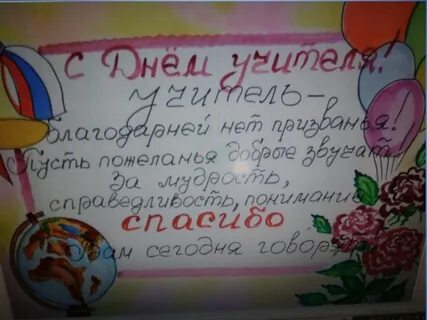 С Днём учителя!
учитель-
благодарней нет призванья!
Пусть пожеланья добрые звучат
за мудрость,
справедливость, понимание
спасибо
Вам сегодня говорят